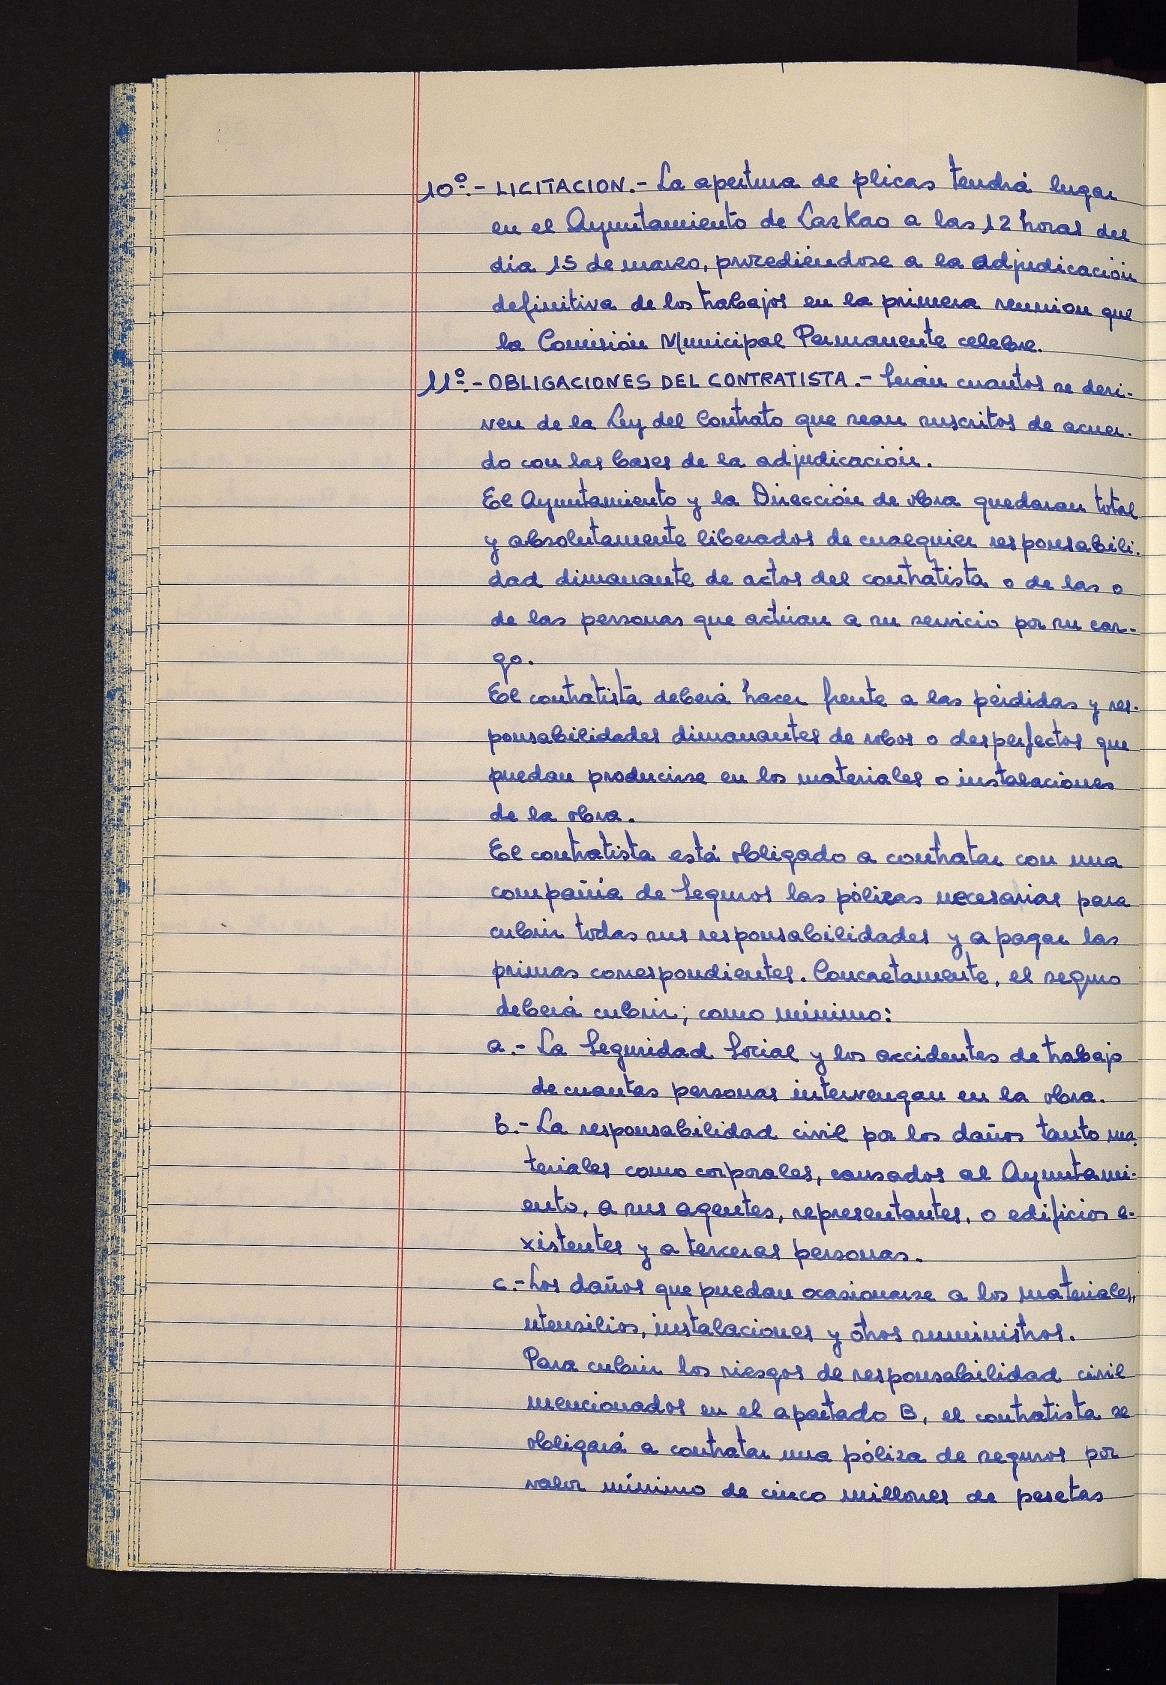 10º.- LICITACION.- La apertura de plicas tendrá lugar
en el Ayuntamiento de Lazkao a las 12 horas del
dia 15 de marzo, procediéndose a la adjudicación
definitiva de los trabajos en la primera reunion que
la Comisión Municipal Permanente celebre.
11º.- OBLIGACIONES DEL CONTRATISTA.- Serán cuantos se deri-
ven de la Ley del Contrato que sean suscritos de acuer-
do con las bases de la adjudicación.
El Ayuntamiento y la Dirección de obra quedaran total
y absolutamente liberados de cualquier responsabili-
dad dimanante de actos del contratista o de las o
de las personas que actúan a su servicio por su car-
go.
El contratista deberá hacer frente a las pérdidas y res-
ponsabilidades dimanantes de robos o desperfectos que
puedan producirse en los materiales o instalaciones
de la obra.
El contratista está obligado a contratar con una
compañia de Seguros las pólizas necesarias para
cubrir todas sus responsabilidades y a pagar las
primas correspondientes. Concretamente, el seguro
deberá cubrir; como mínimo:
a.- La Seguridad Social y los accidentes de trabajo
de cuantas personas intervengan en la obra.
B.- La responsabilidad civil por los daños tanto ma-
teriales como corporales, causados al Ayuntami-
ento, a sus agentes, representantes, o edificios e-
xistentes y a terceras personas.
c.- Los daños que puedan ocasionarse a los materiales,
utensilios, instalaciones y otros suministros.
Para cubrir los riesgos de responsabilidad civil
mencionados en el apartado B, el contratista se
obligará a contratar una póliza de seguros por
valor mínimo de cinco millones de pesetas